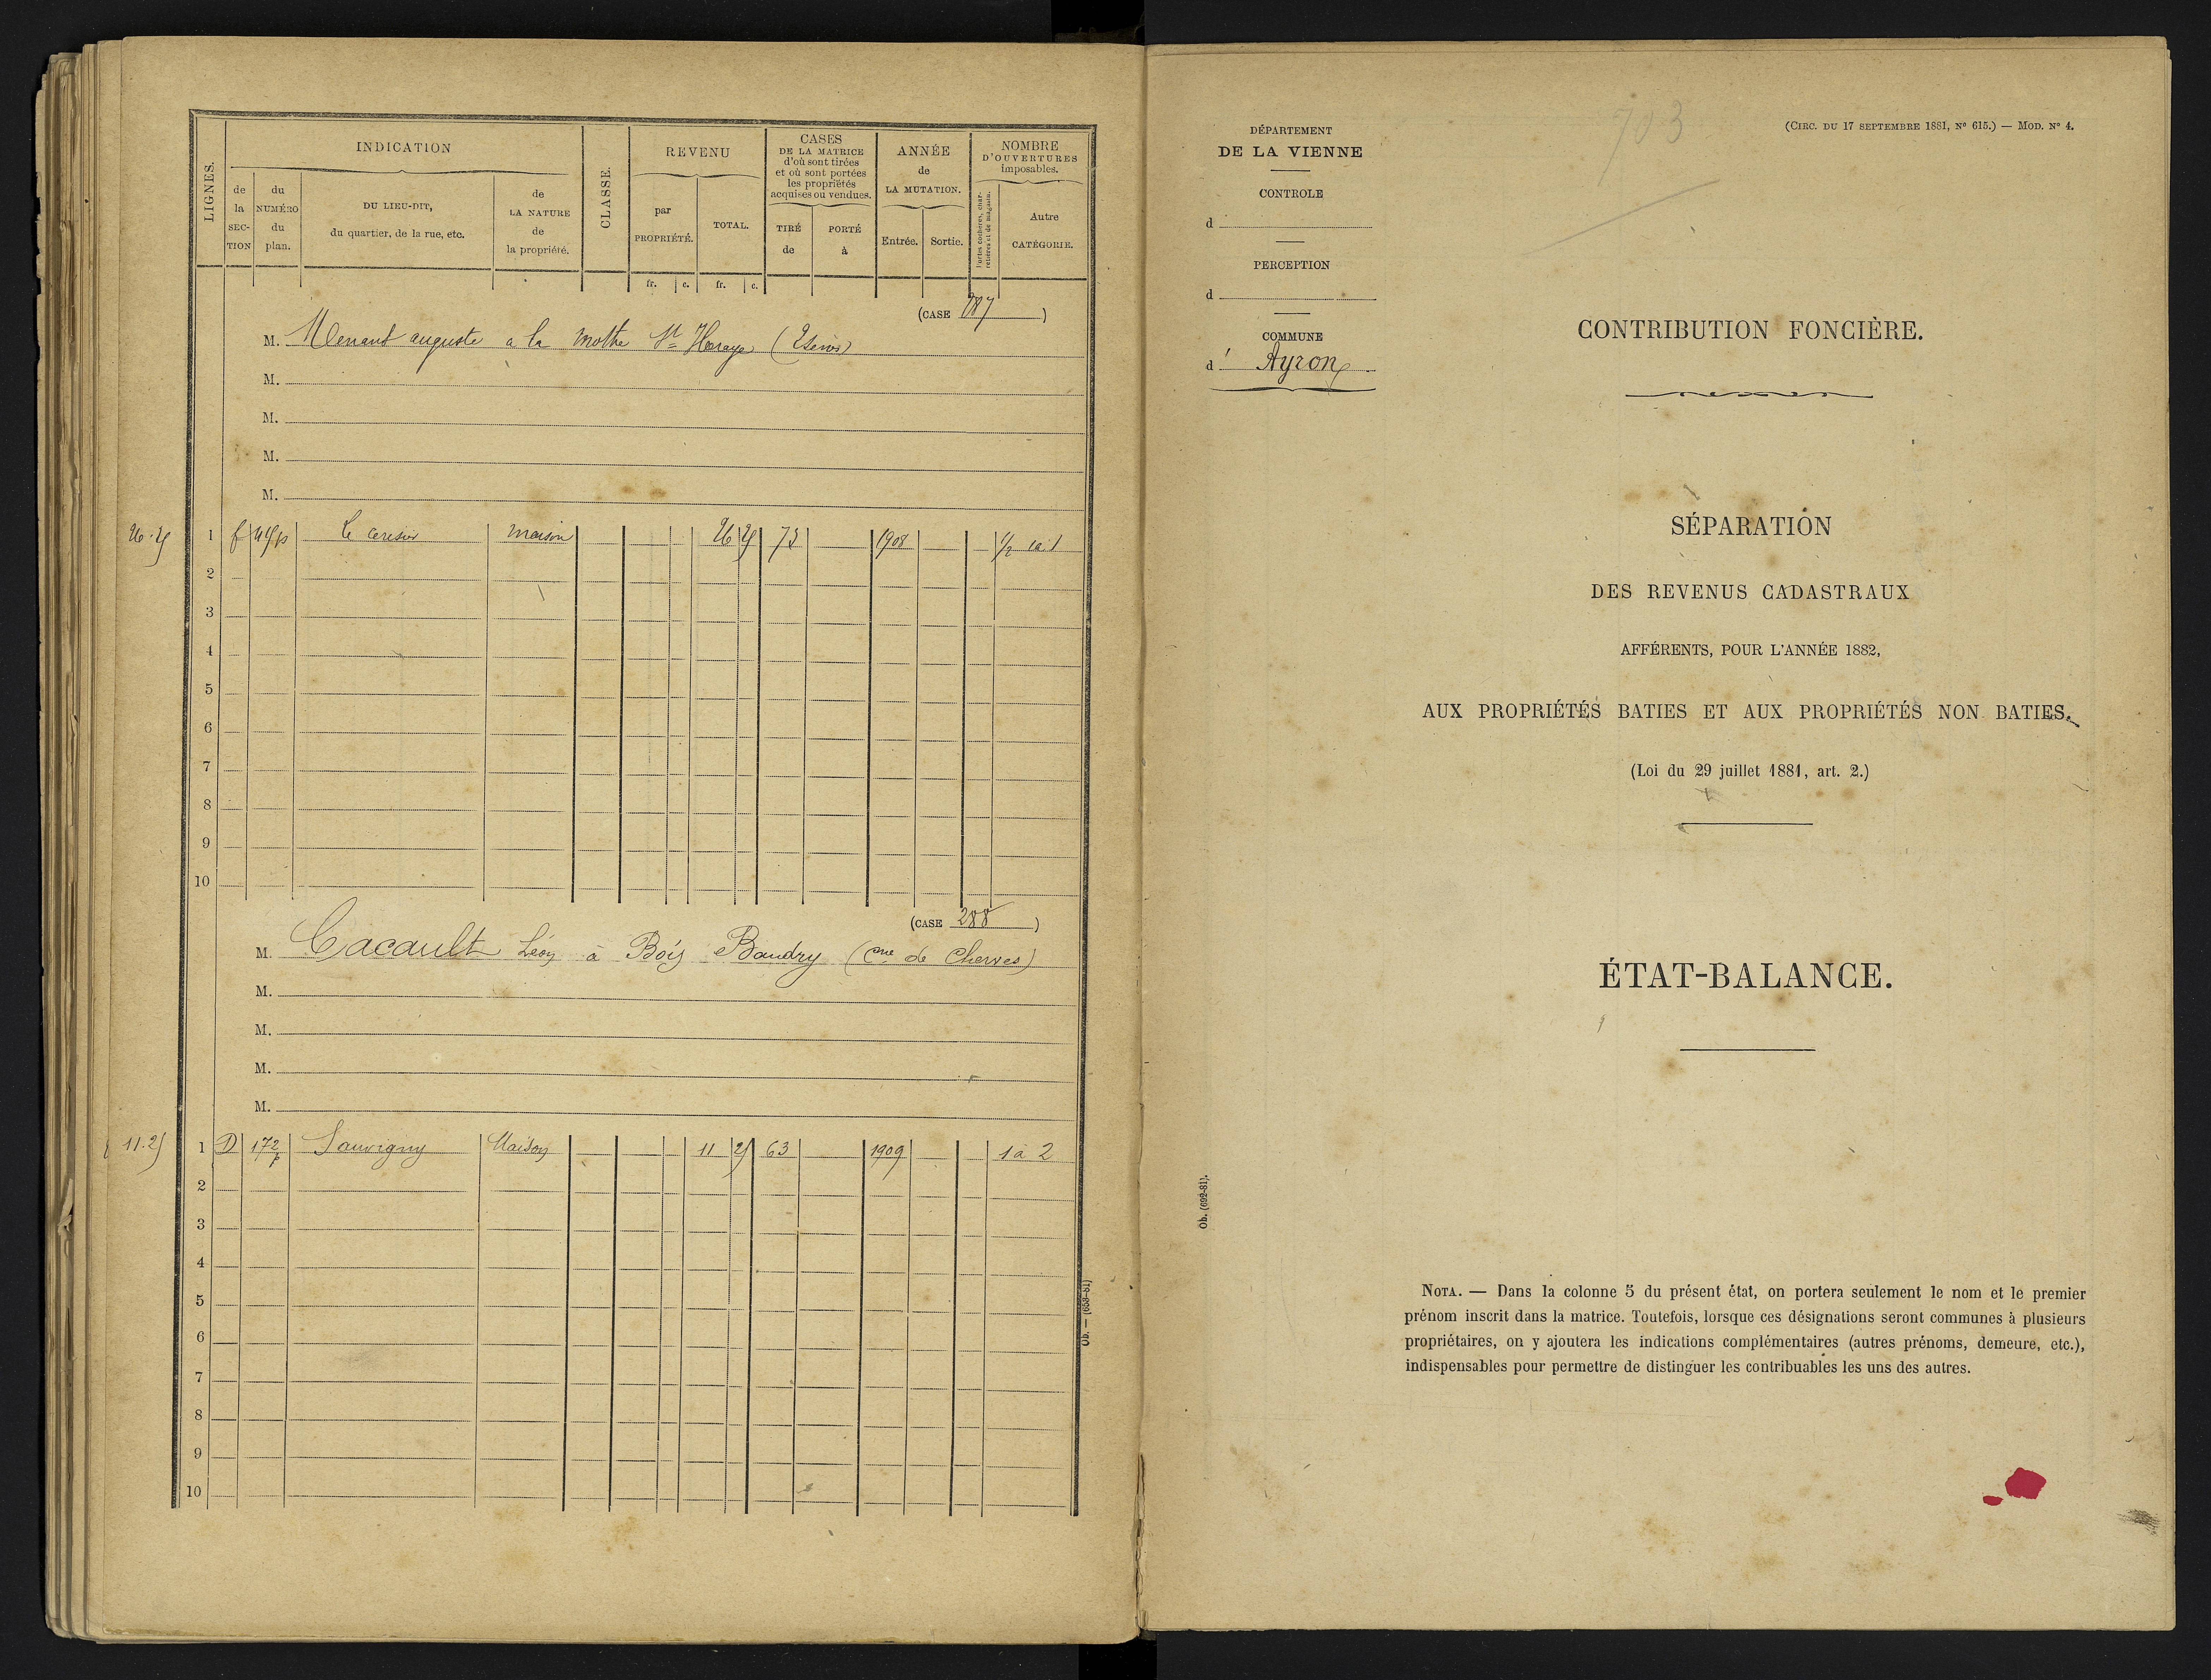 LIGNES.
INDICATION
de la SECTION
du NUMÉRO du plan.
DU LIEU-DIT, du quartier, de la rue, etc.
de LA NATURE de la propriété.
CLASSE.
REVENU
par PROPRIÉTÉ.
TOTAL.
CASES DE LA MATRICE d'où sont tirées et où sont portées les propriétés acquises ou vendues.
TIRÉ de
PORTÉ à
ANNÉE de LA MUTATION.
Entrée.
Sortie.
NOMBRE D'OUVERTURES imposables.
Portes cochères, charretières et de magasin.
Autre CATÉGORIE.
fr. c. fr. c.
(CASE 287)
M. Menant auguste a la mothe St Heraye
M.
M.
M.
M.
1 maison 73 1908
2
3
4
5
6
7
8
9
10
(CASE 288)
M. Cacault Léon à Bois Baudry (cne de Cherves)
M.
M.
M.
M.
11.25 1 D 172p Sauvigny Maison 11 25 63 1909 1 à 2
2
3
4
5
6
7
8
9
10
Ob. — (693-81)
703
DÉPARTEMENT
DE LA VIENNE
(CIRC. DU 17 SEPTEMBRE 1881, N° 615.) — MOD. N° 4.
CONTROLE
d
PERCEPTION
d
COMMUNE
d' Ayron
CONTRIBUTION FONCIÈRE.
SÉPARATION
DES REVENUS CADASTRAUX
AFFÉRENTS, POUR L'ANNÉE 1882,
AUX PROPRIÉTÉS BATIES ET AUX PROPRIÉTÉS NON BATIES.
(Loi du 29 juillet 1881, art. 2.)
ÉTAT-BALANCE.
Ob. (692-81).
NOTA. — Dans la colonne 5 du présent état, on portera seulement le nom et le premier
prénom inscrit dans la matrice. Toutefois, lorsque ces désignations seront communes à plusieurs
propriétaires, on y ajoutera les indications complémentaires (autres prénoms, demeure, etc.),
indispensables pour permettre de distinguer les contribuables les uns des autres.